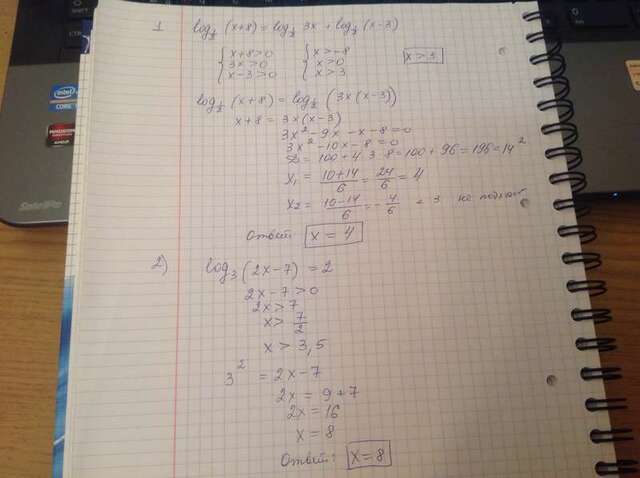 1 log½ (x+8) = log½ 3x + log½ (x-3)
{ x+8>0 { x>-8
{ 3x>0 { x>0 x>3
{ x-3>0 { x>3
log½ (x+8) = log½ (3x(x-3))
x+8 = 3x(x-3)
3x² - 9x - x - 8 = 0
3x² - 10x - 8 = 0
D = 100 + 4·3·8 = 100 + 96 = 196 = 14²
x₁ = (10+14)/6 = 24/6 = 4
x₂ = (10-14)/6 = -4/6 не
Ответ x = 4
2) log₃(2x-7) = 2
2x-7>0
2x>7
x> 7/2
x > 3,5
3² = 2x-7
2x = 9+7
2x = 16
x = 8
Ответ: x=8
intel
CORE
AMD
RADEON